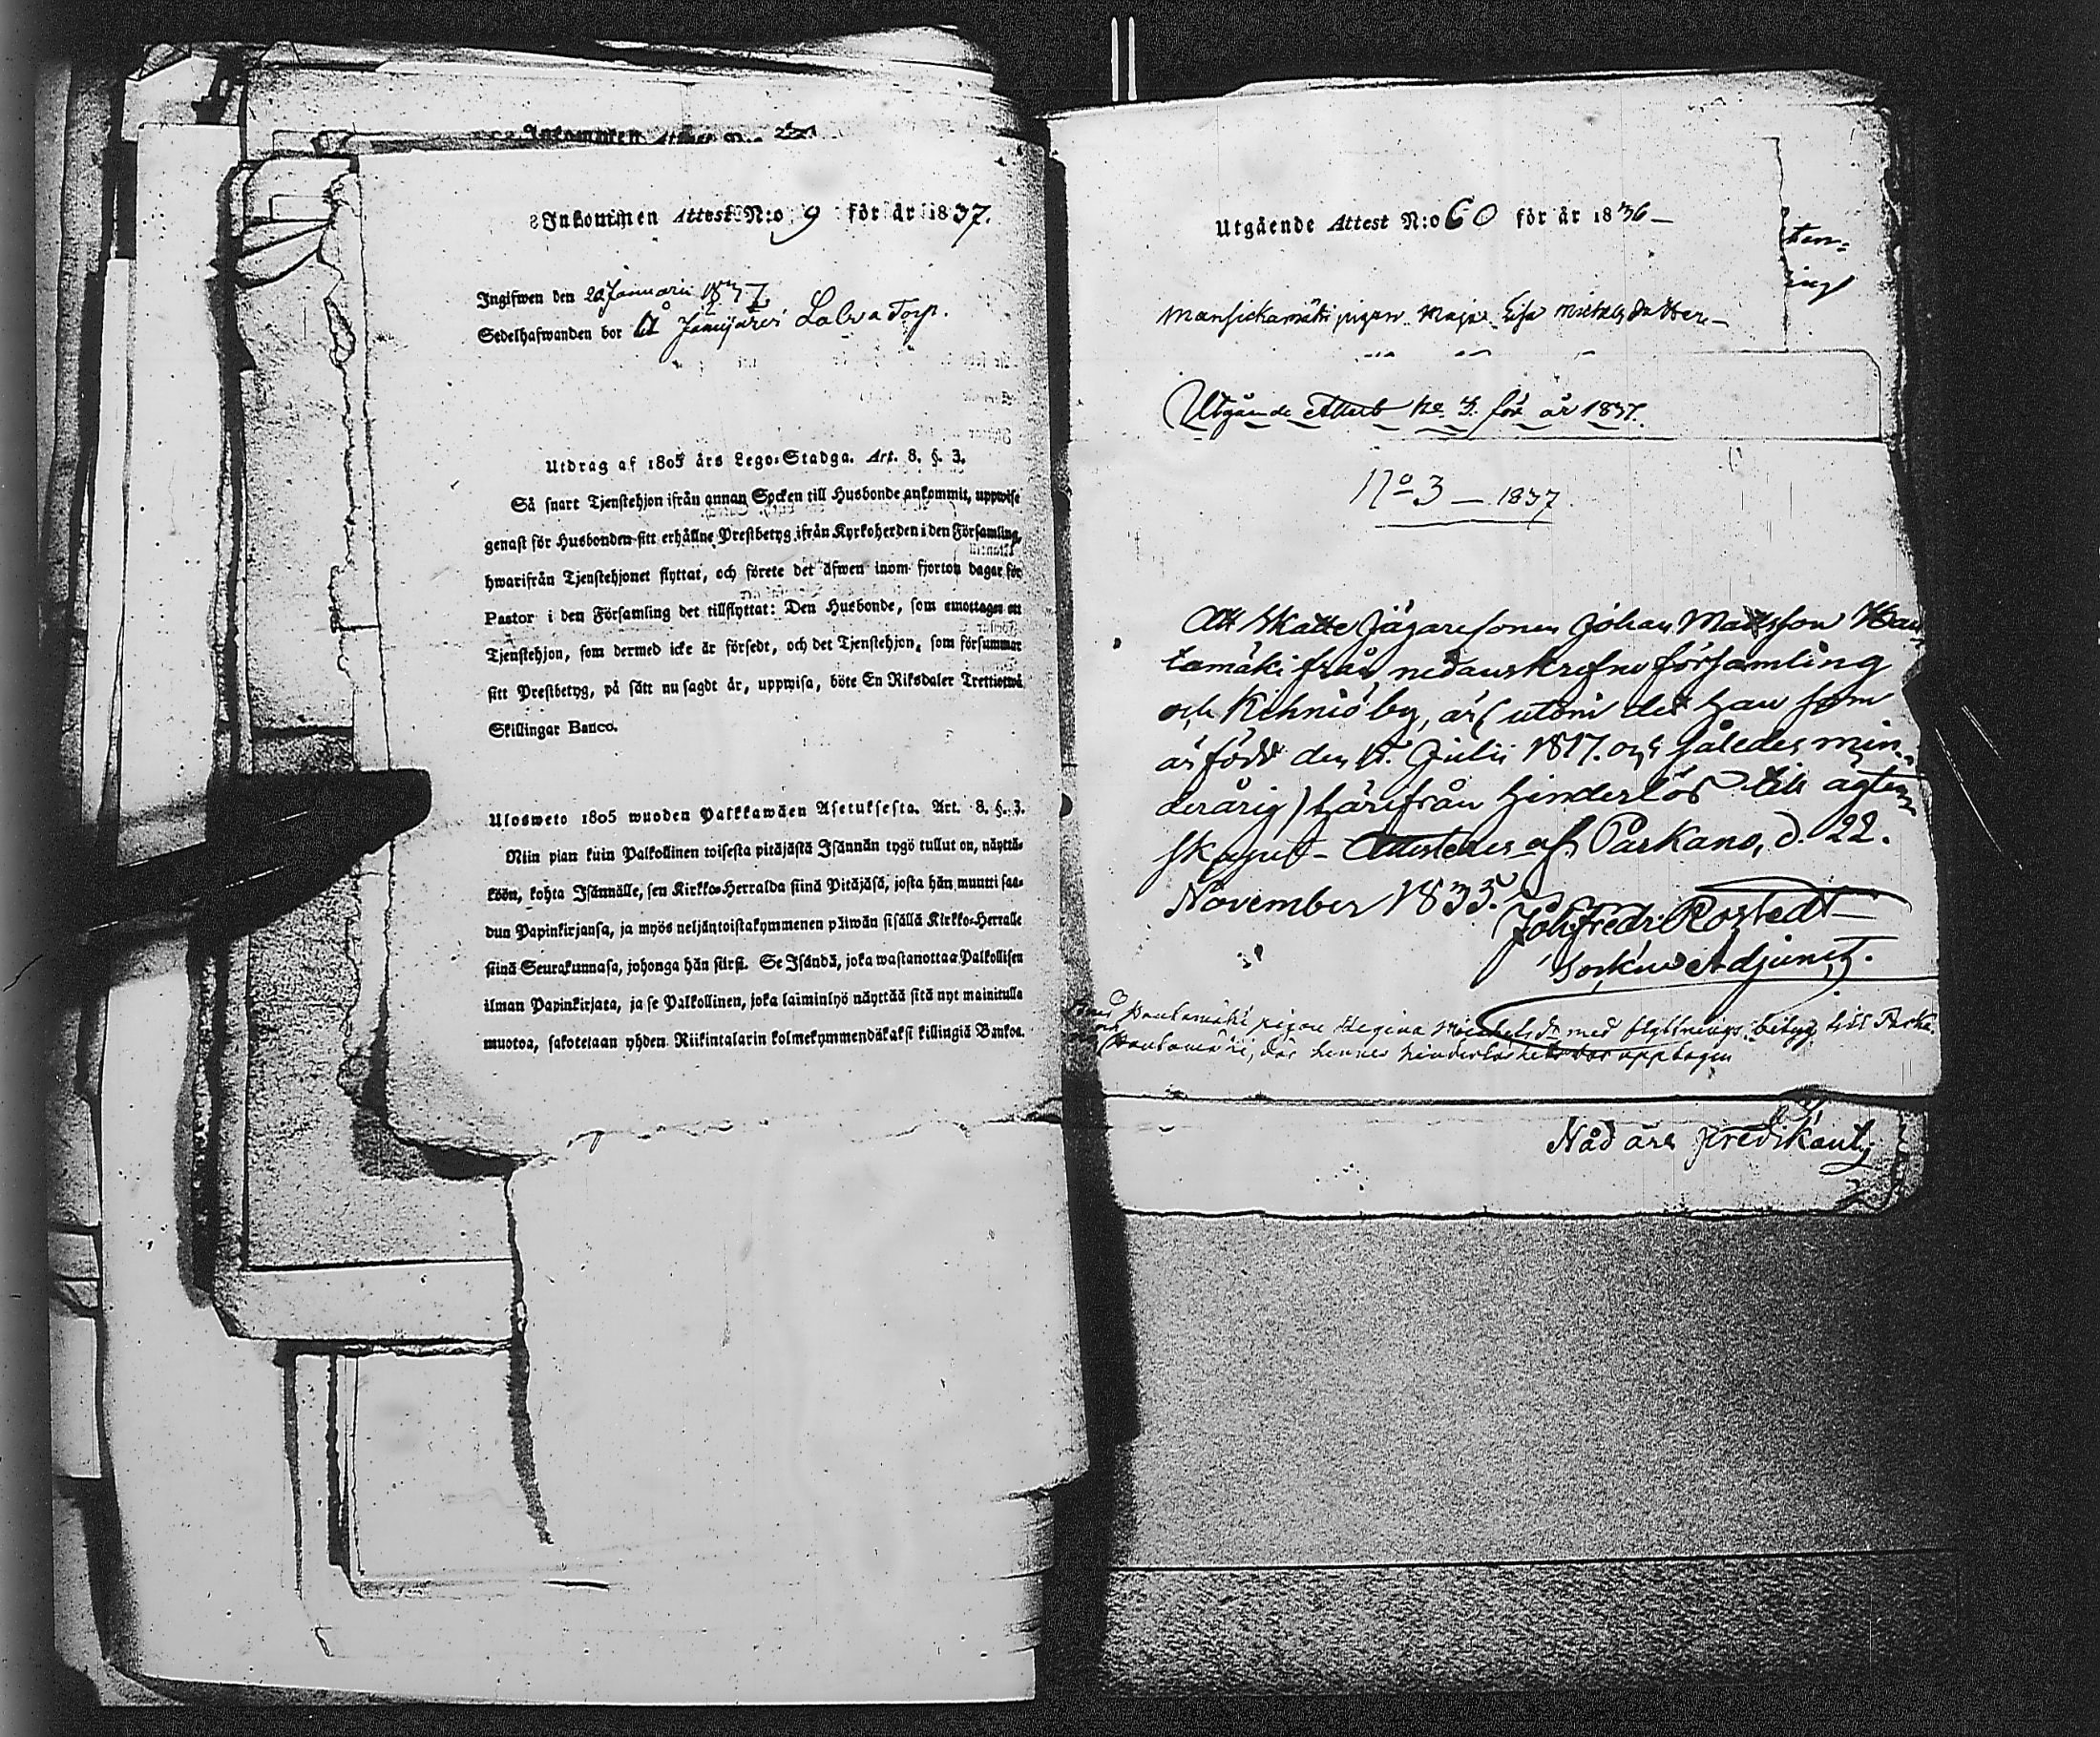 Inkommen Attest N:o 9 för år 1837.
Ingifwen den 20 Januarii 1837
Sedelhafwanden bor å Torp.
Utdrag af 1805 års Lego-Stadga. Art. 8. §. 3.
Så snart Tjenstehjon ifrån annan Socken till Husbonde ankommit, uppwise
genast för Husbonden sitt erhållne Prestbetyg ifrån Kyrkoherden i den Församling,
hwarifrån Tjenstehjonet flyttat, och förete det äfwen inom fjorton dagar för
Pastor i den Församling det tillflyttat: Den Husbonde, som emottager ett
Tjenstehjon, som dermed icke är försedt, och det Tjenstehjon, som försummar
sitt Prestbetyg, på sätt nu sagdt är, uppwisa, böte En Riksdaler Trettiotwå
Skillingar Banco.
Ulosweto 1805 wuoden Palkkawäen Asetuksesta. Art. 8. §. 3.
Niin pian kuin Palkollinen toisesta pitäjästä Isännän tygö tullut on, näyttä-
köön, kohta Isännälle, sen Kirkko-Herralda siinä Pitäjäsä, josta hän muutti saa-
dun Papinkirjansa, ja myös neljäntoistakymmenen päiwän sisällä Kirkko-Herralle
siinä Seurakunnasa, johonga hän siirsi. Se Isändä, joka wastanottaa Palkollisen
ilman Papinkirjata, ja se Palkollinen, joka laiminlyö näyttää sitä nyt mainitulla
muotoa, sakotetaan yhden Riikintalarin kolmekymmendäkaksi killingiä Bankoa.
Utgående Attest N:o 60 för år 1836
Mansickamäki pigan Maja Lisa
Utgående Attest no 3. för år 1837.
No 3 — 1837
Att Skatte Jägaresonen Johan Mattsson
tamäki från nedanskrefne församling
och Kihniö by, är (utom det han som
är född den Julii 1817. och således min-
derårig) härifrån hinderlös till ägten-
skapet - Attesteres af Parkano, d. 22.
November 1835.
Joh: Fredr: Rostedt
Sockne Adjunct.
pigan Regina med flyttnings betyg till
der hennes hinderlöshet var upptagen
Nådårs predikant